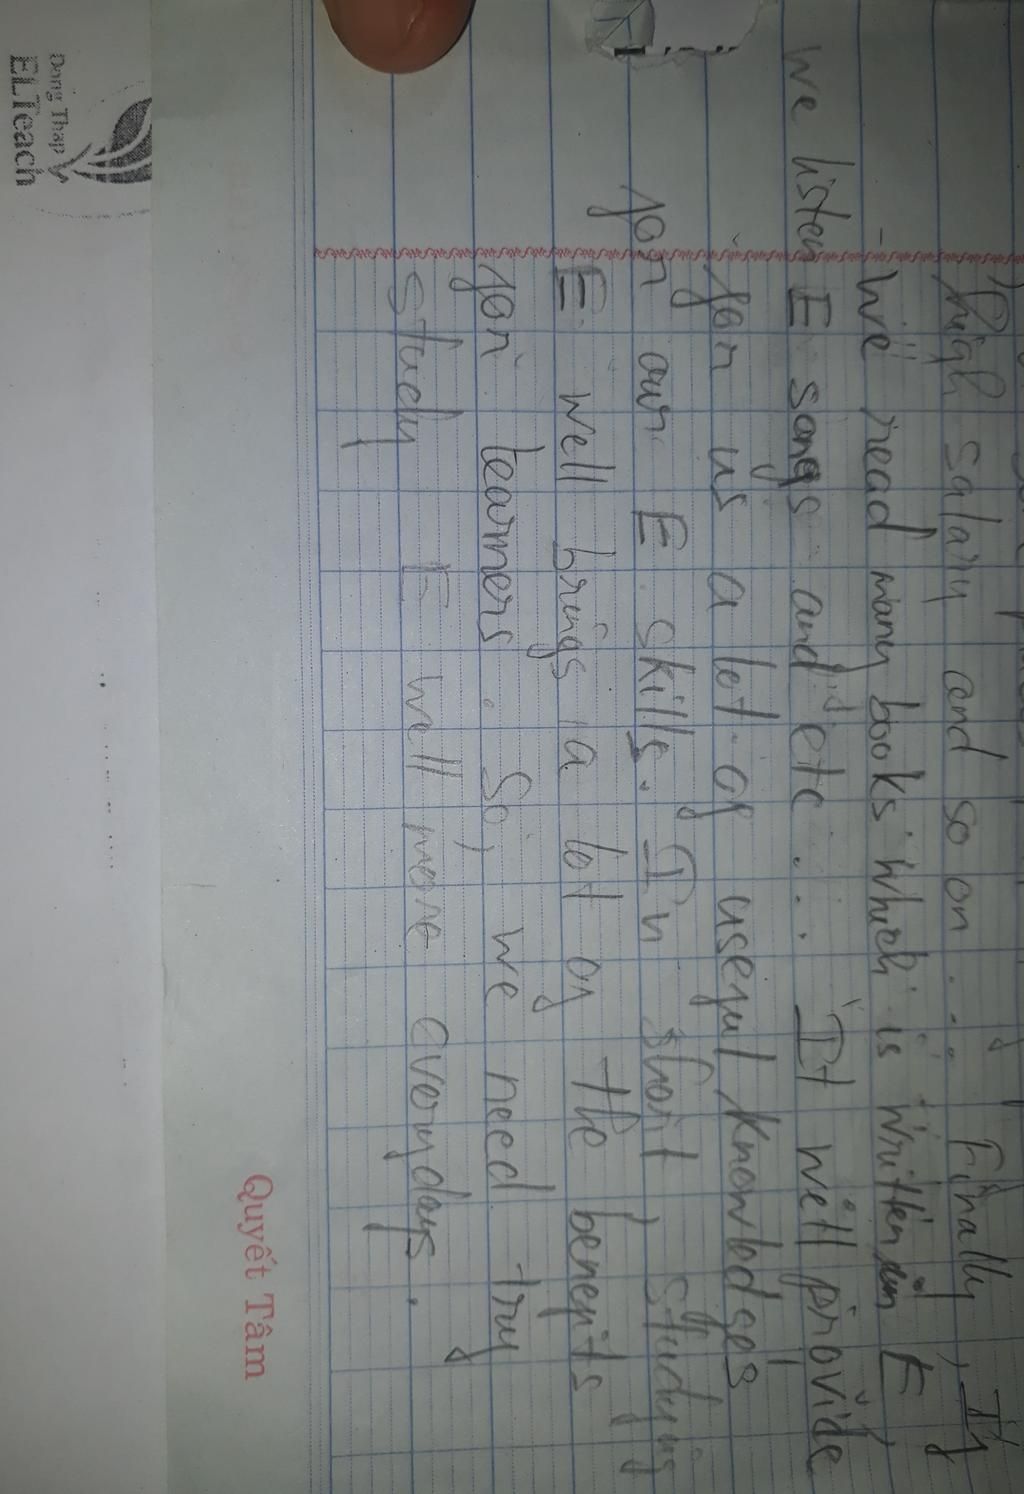 high salary and so on ... Finally, If
- We read many books which is written in E
We listen E songs and etc ... It will provide
for us a lot of useful knowledges
for our E skills. In short, studying
E well brings a lot of the benefits
for learners. So, we need try
study E well more everydays.
Quyết Tâm
Dong Thap
ELTeach